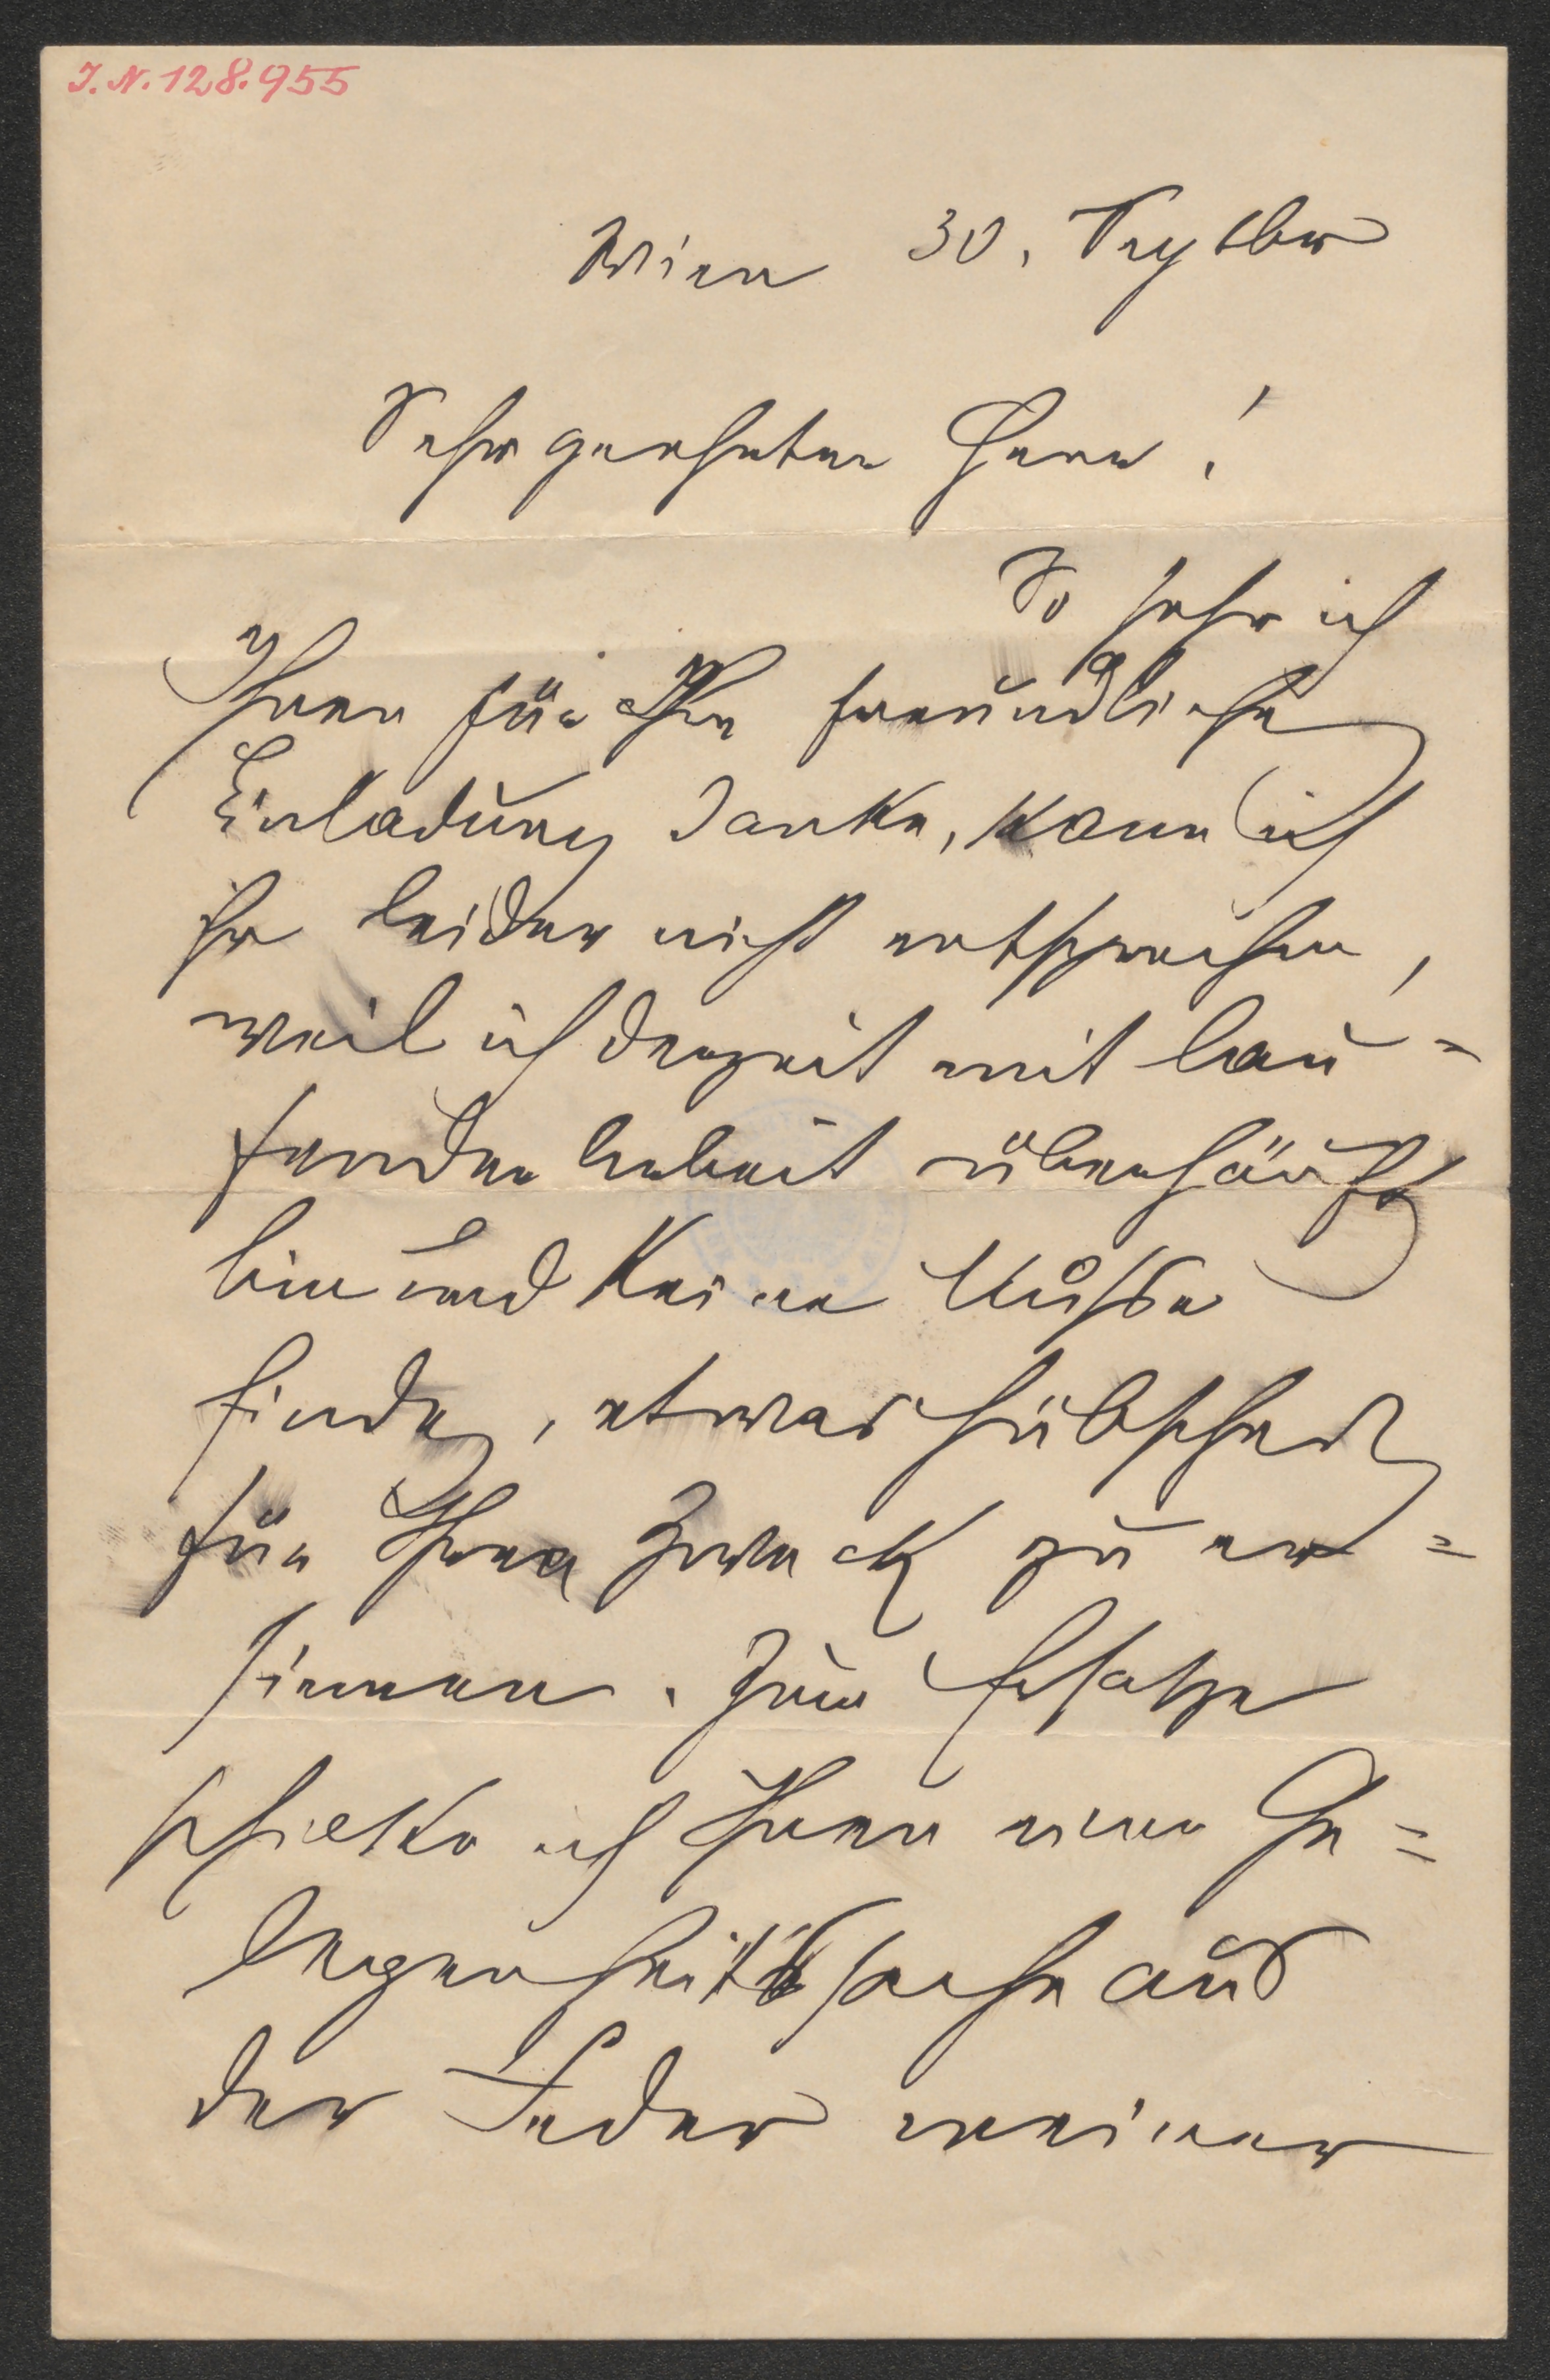 I. N. 128.955
Wien 30. Septber
Sehr geehrter Herr!
So sehr ich
Ihnen für Ihre freundliche
Einladung danke, kann ich
ihr leider nicht entsprechen,
weil ich derzeit mit lau=
fender Arbeit überhäuft
bin und keine Muße
finde, etwas hübsches
für Ihren Zweck zu er=
sinnen. Zum Ersatze
schicke ich Ihnen eine Ge=
legenheitssache aus
der Feder meiner